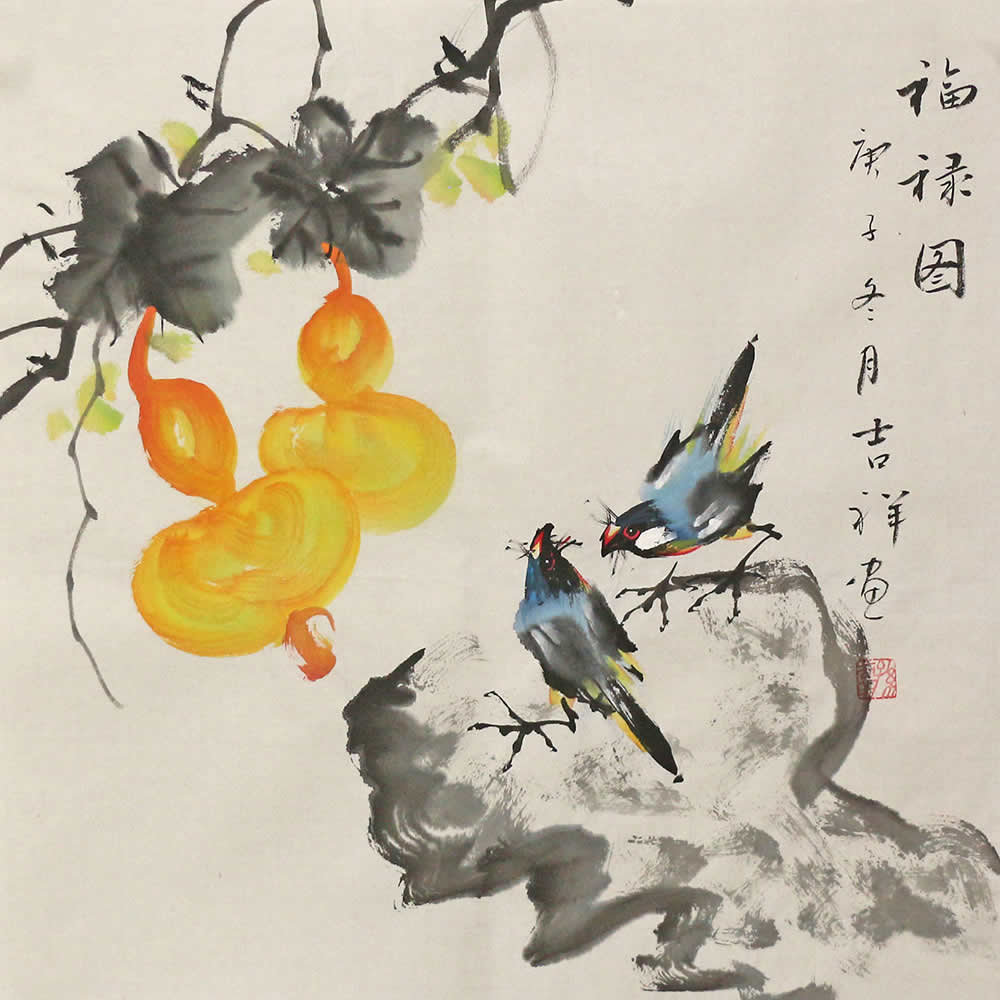 福禄图
庚子冬月吉祥画